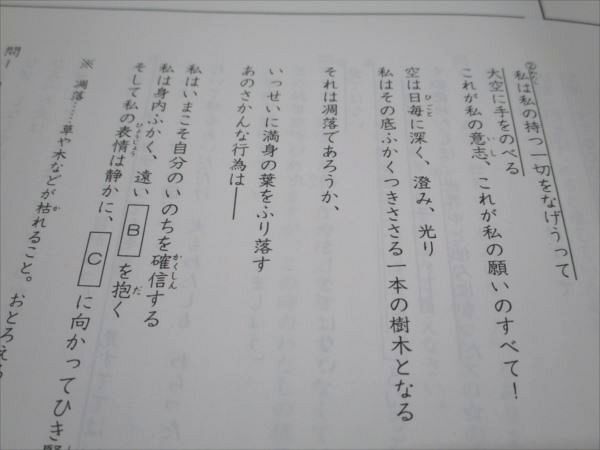 ②私は私の持つ一切をなげうって
大空に手をのべる
これが私の意志、これが私の願いのすべて！
空は日毎に深く、澄み、光り
私はその底ふかくつきささる一本の樹木となる
それは凋落であろうか、
いっせいに満身の葉をふり落す
あのさかんな行為は――
私はいまこそ自分のいのちを確信する
私は身内ふかく、遠い B を抱く
そして私の表情は静かに、 C に向かってひき
※ 凋落……草や木などが枯れること。おとろえる
問